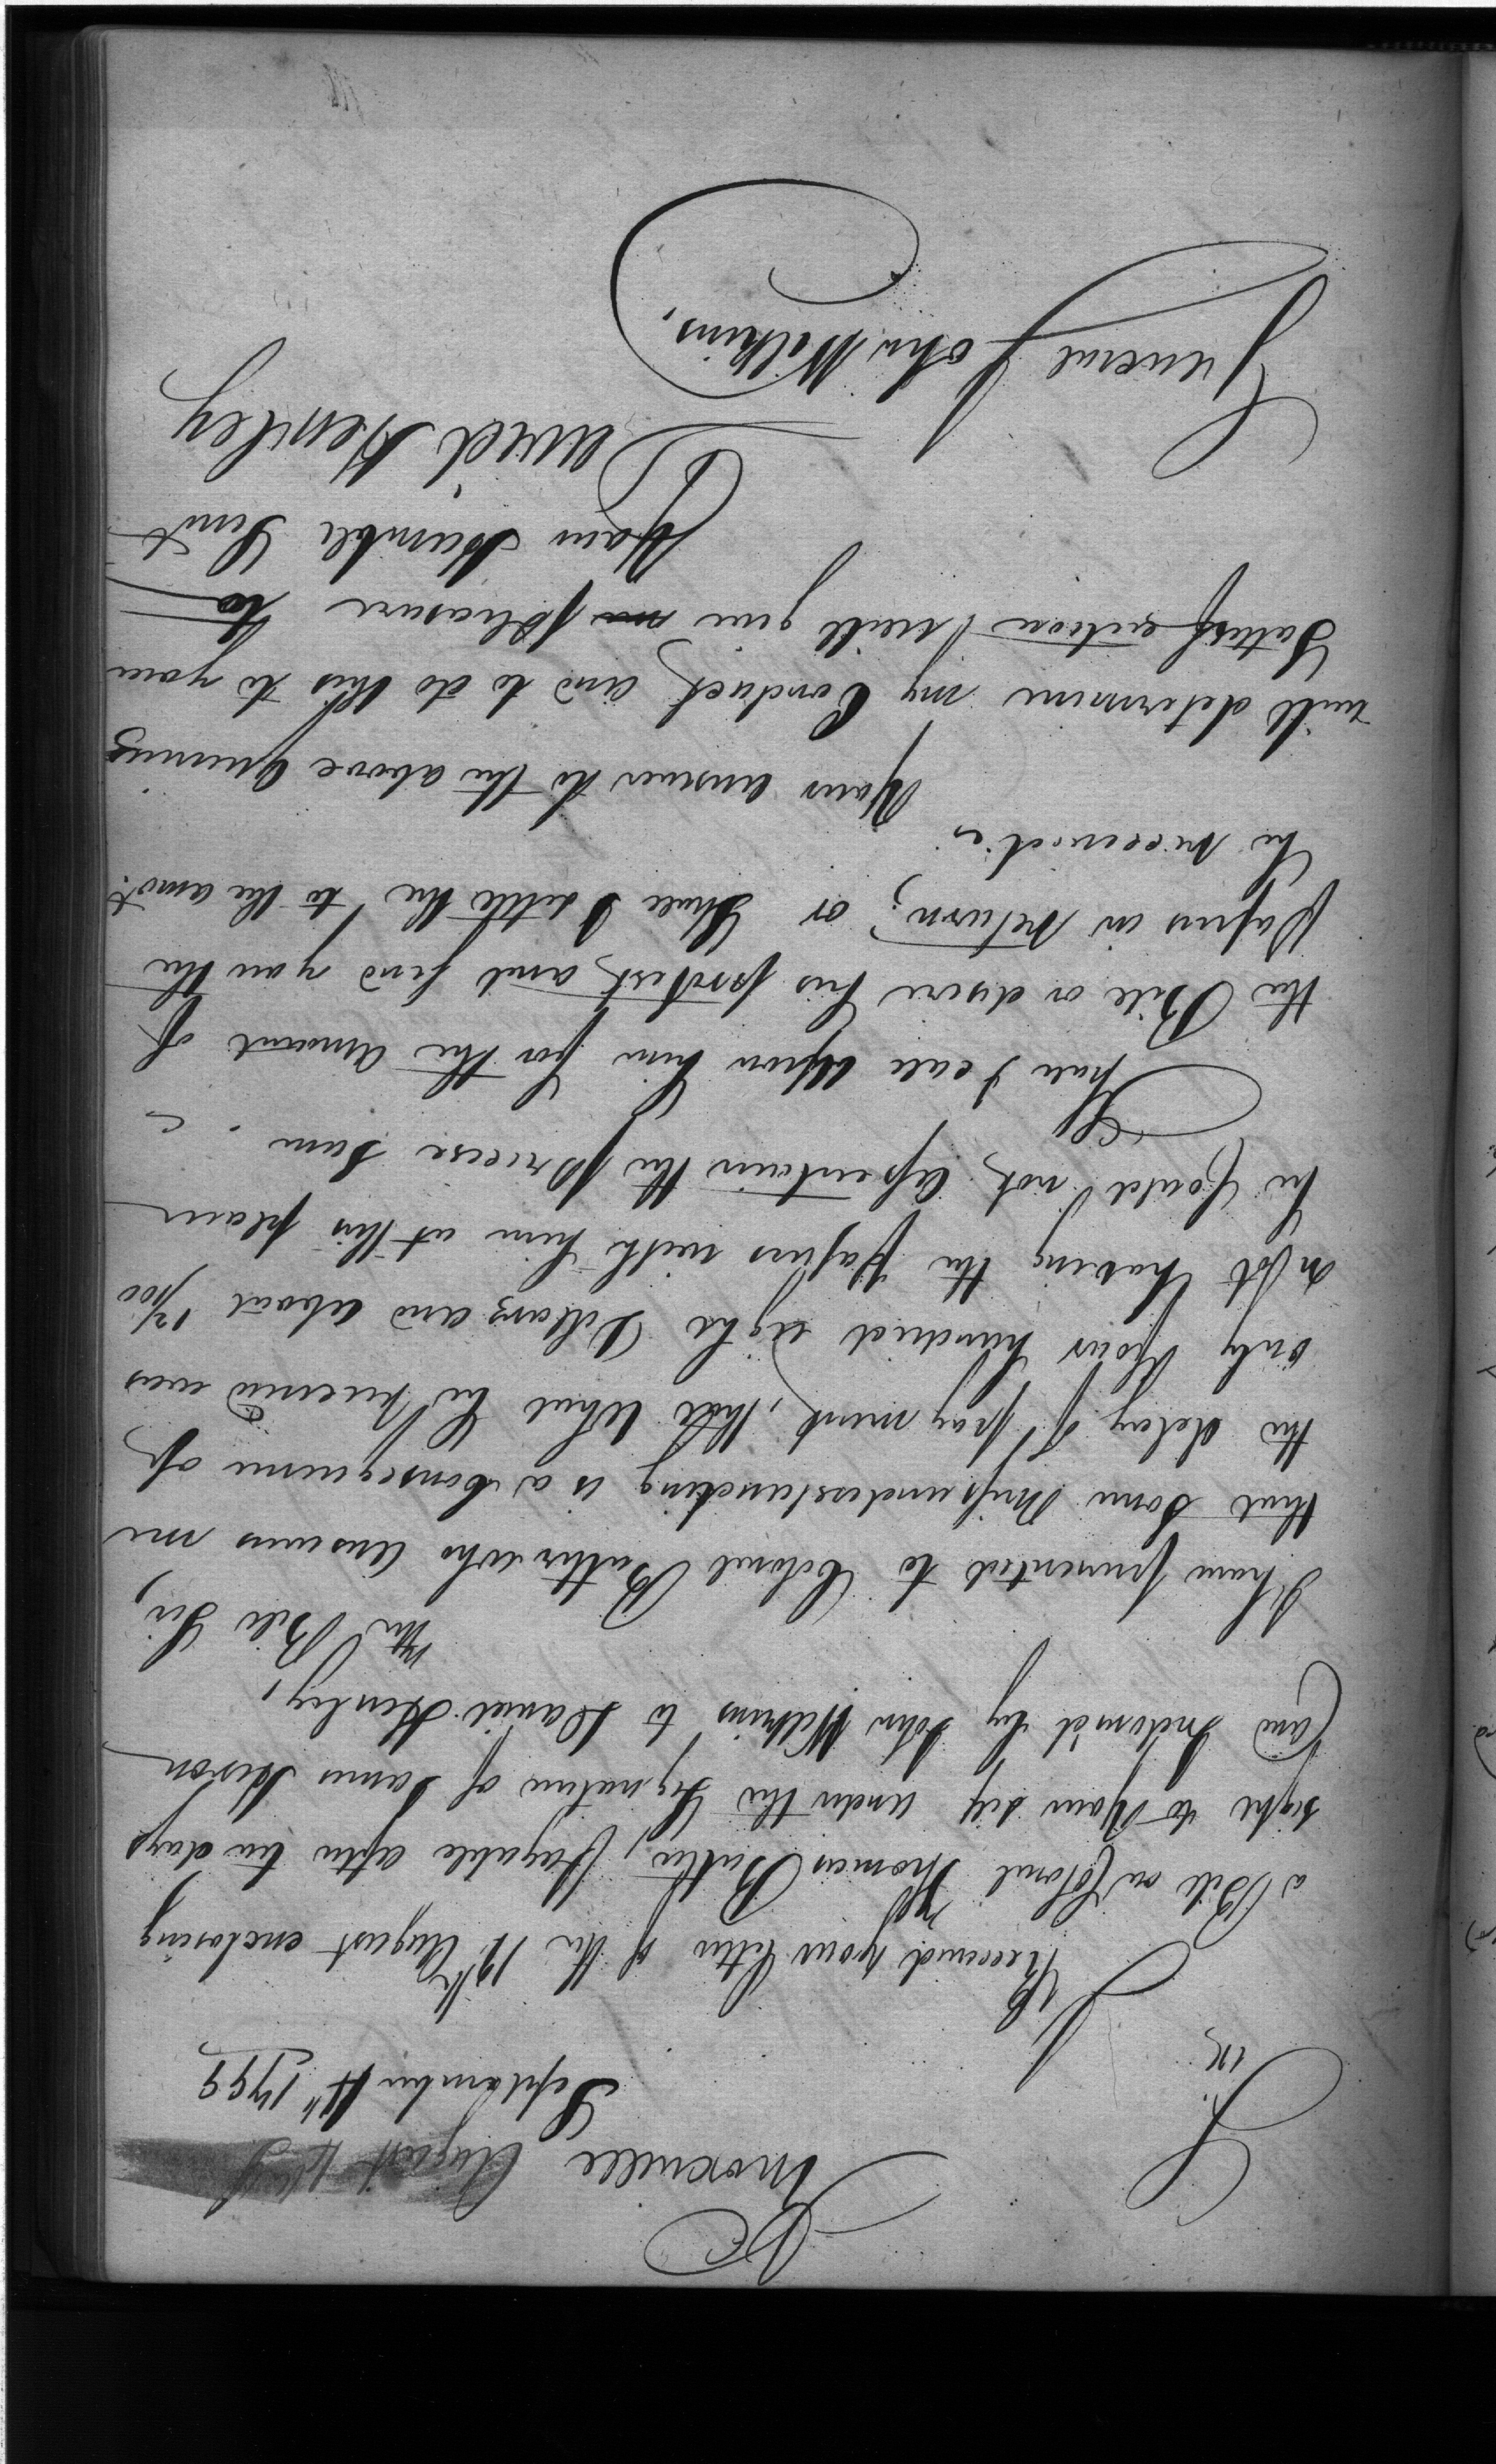 Knoxville
September 4th 1799
Sir
I Received your letter of the 12th August enclosing
a Bill on Colonel Thomas Butler, Payable after ten days
sight to Your self under the Signature of James
(and Indorsd by John Wilkins to David Henley,
The Bill Sir,
I have presented to Colonel Butler who answers me
that some Misunderstanding is a Consequence of
the delay of payment, that what he Received was
only four hundred eight Dollars and about 12/100
not having the papers with him at this place
he Could not Ascertain the Precise Sum.
Shall I call upon him for the Amount of
the Bill or desire his protest, and send you the
Papers in return; or Shall I settle the to the amot.
he received.
Your answer to the above Queries
will determine my Conduct, and to do this to your
Satisfaction will give pleasure to
Your Humble Servt
David Henley
General John Wilkins.